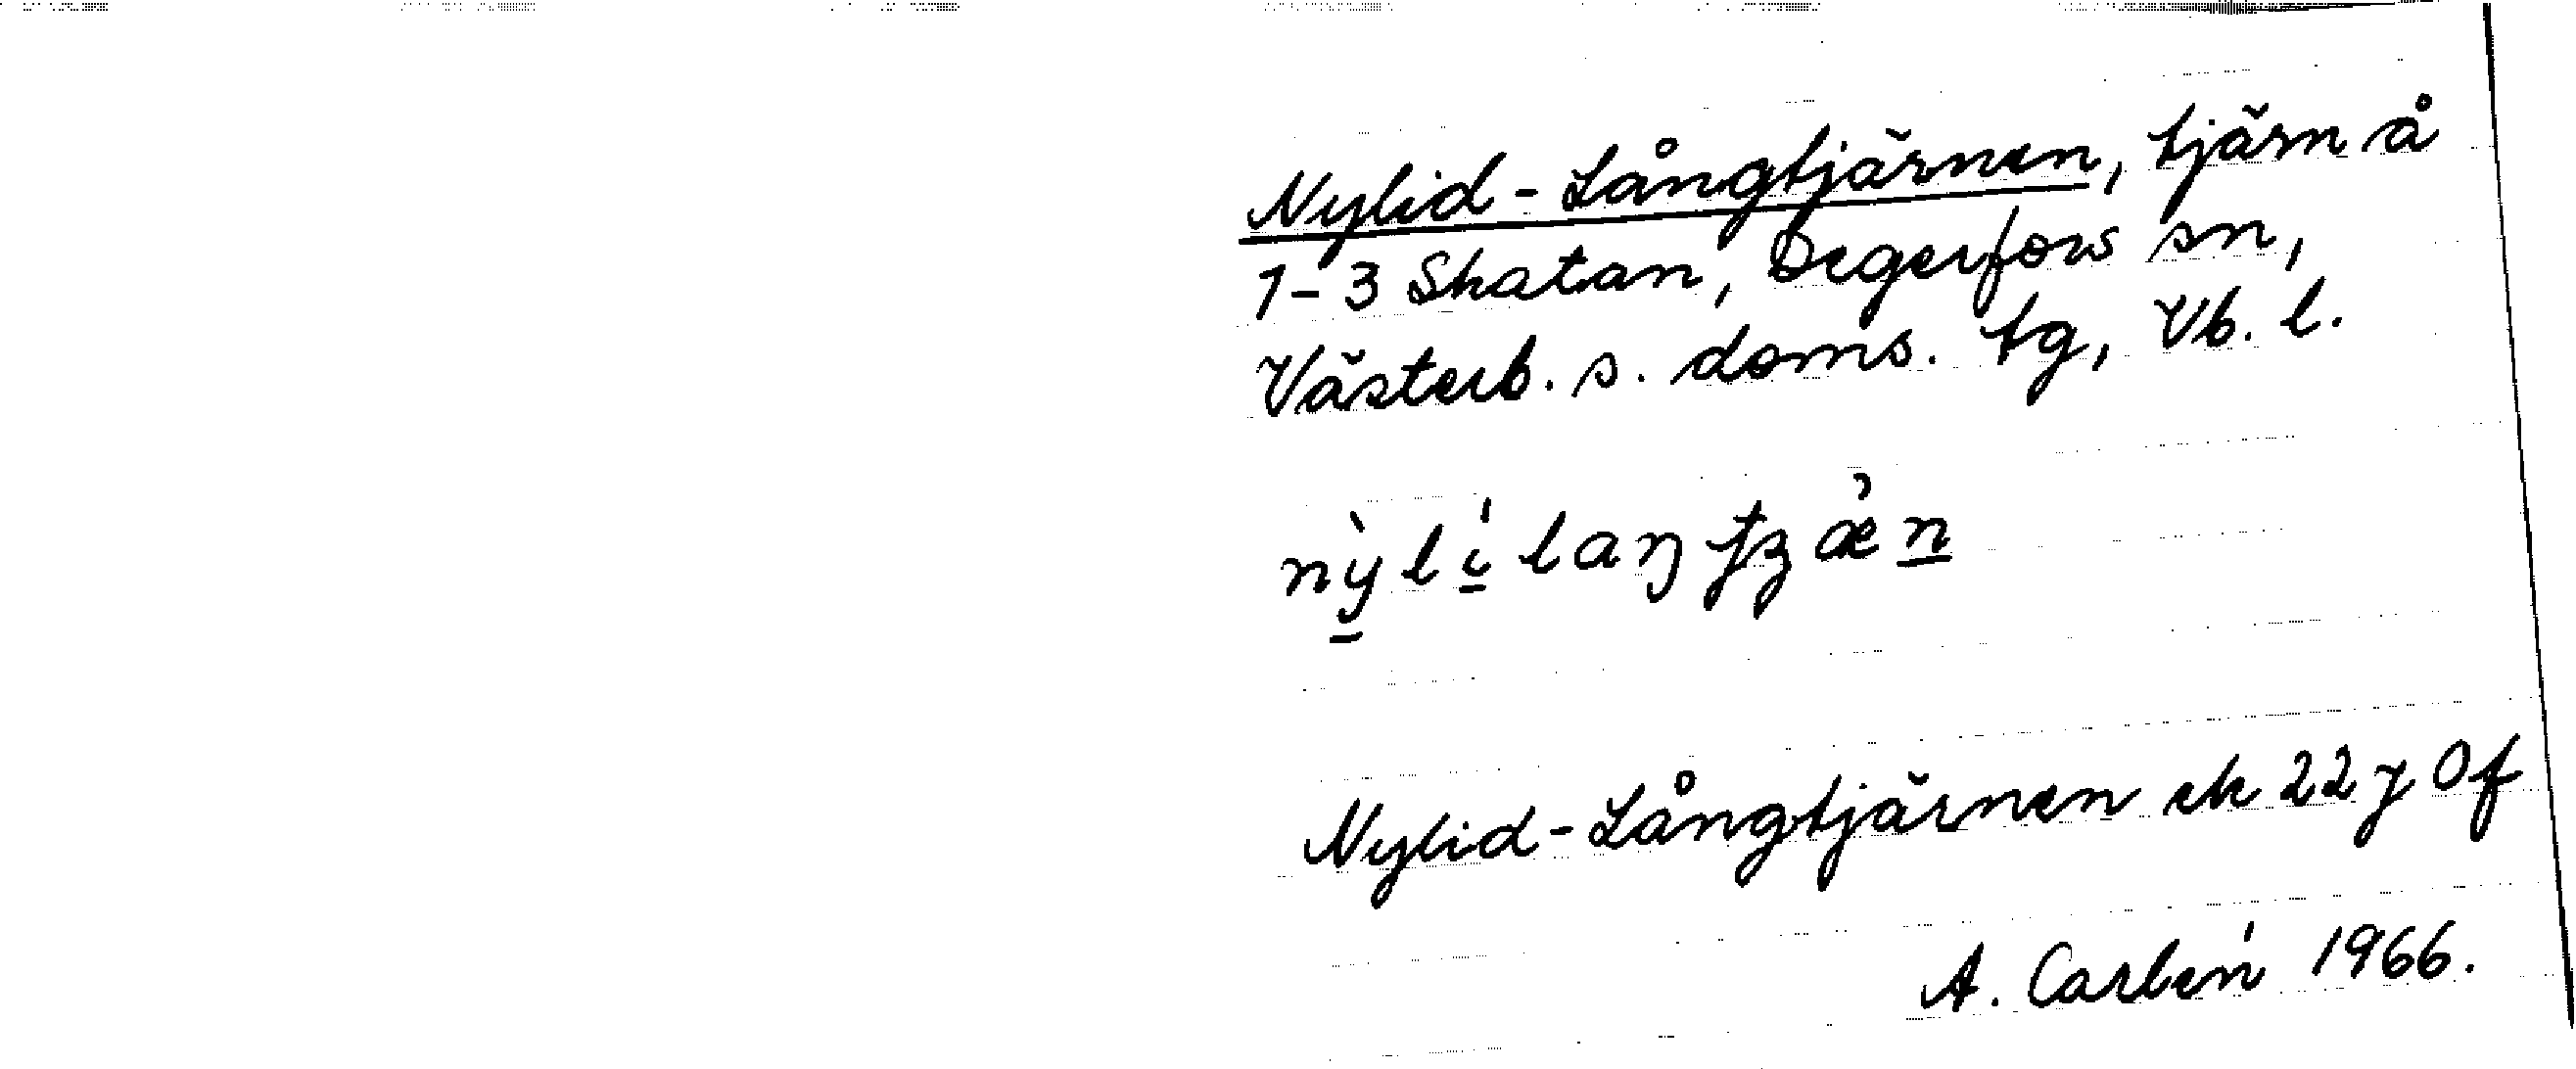 Nylid-Långtjärnen, tjärn å
1-3 Skatan, Degerfors sn,
Västerb. s. doms. tg, Vb. l.
Nylid-Långtjärnen ek 22 j Of
A. Carlén 1966.